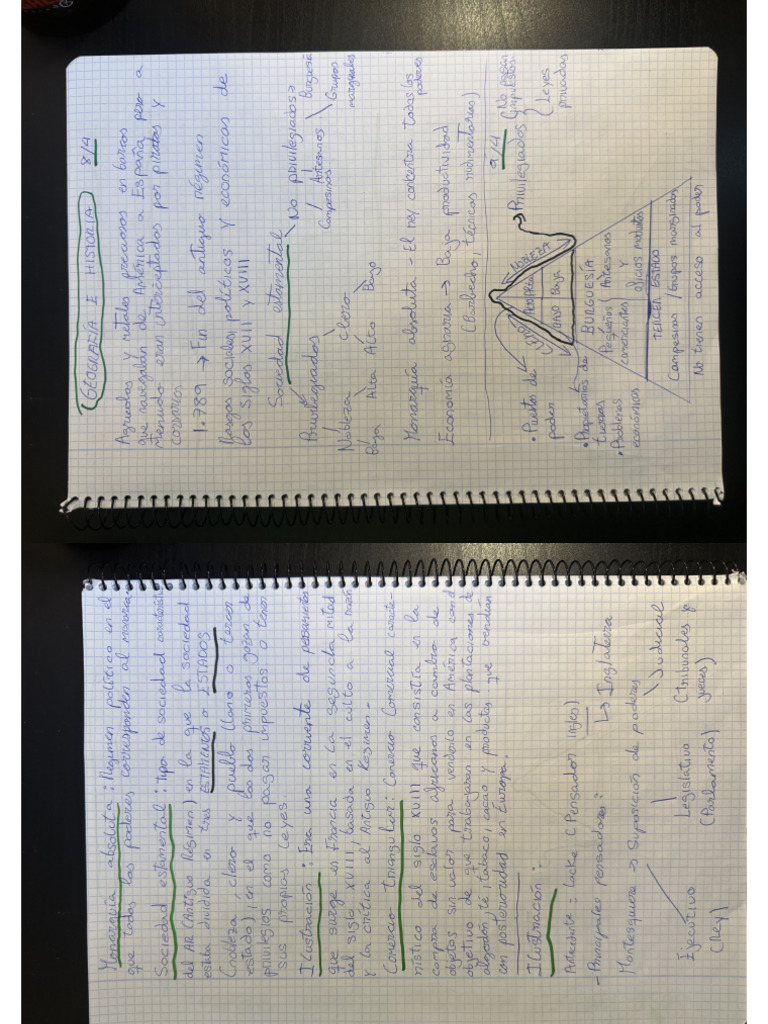 GEOGRAFÍA E HISTORIA 8/4
Agrupados y metales preciosos en barcos
que navegaban de América a España, pero a
menudo eran interceptados por piratas y
corsarios
1.789 → Fin del antiguo régimen
Rasgos sociales, políticos y económicos de
los siglos XVII y XVIII
Sociedad estamental
Privilegiados No privilegiados
Nobleza Clero Campesinos Artesanos Burguesía
Baja Alta Alto Bajo Grupos marginales
Monarquía absoluta - El rey concentra todos los poderes
Economía agraria → Baja productividad
(Barbecho, técnicas rudimentarias)
9/4
Privilegiados
No pagan impuestos
Leyes privadas
NOBLEZA
BAJA
• Puesto de poder
• Propietarios de tierras
• Problemas económicos
BURGUESÍA
Pequeños comerciantes y
Artesanos
oficios modestos
TERCER ESTADO
Campesinos / Grupos marginados
No tienen acceso al poder
Monarquía absoluta: Régimen político en el
que todos los poderes corresponden al monarca.
Sociedad estamental: Tipo de sociedad
del AR (Antiguo Régimen) en la que la sociedad
está dividida en tres ESTAMENTOS o ESTADOS
(nobleza, clero y pueblo llano o tercer
estado), en el que los dos primeros gozan de
privilegios como no pagar impuestos o tener
sus propias leyes.
Ilustración: Era una corriente de pensamiento
que surge en Francia en la segunda mitad
del siglo XVIII, basada en el culto a la razón
y la crítica al Antiguo Régimen.
Comercio triangular: Comercio Comercial
nístico del siglo XVIII que consistía en la
compra de esclavos africanos a cambio de
objetos sin valor para venderlo en América con el
objetivo de que trabajaran en las plantaciones de
algodón, té, tabaco, cacao y productos que vendían
con posterioridad en Europa.
Ilustración:
Antecedente: Locke (Pensador Inglés)
↳ Inglaterra
- Principales pensadores:
Montesquieu → Separación de poderes
Ejecutivo Legislativo Judicial
(Rey) (Parlamento) (Tribunales y jueces)